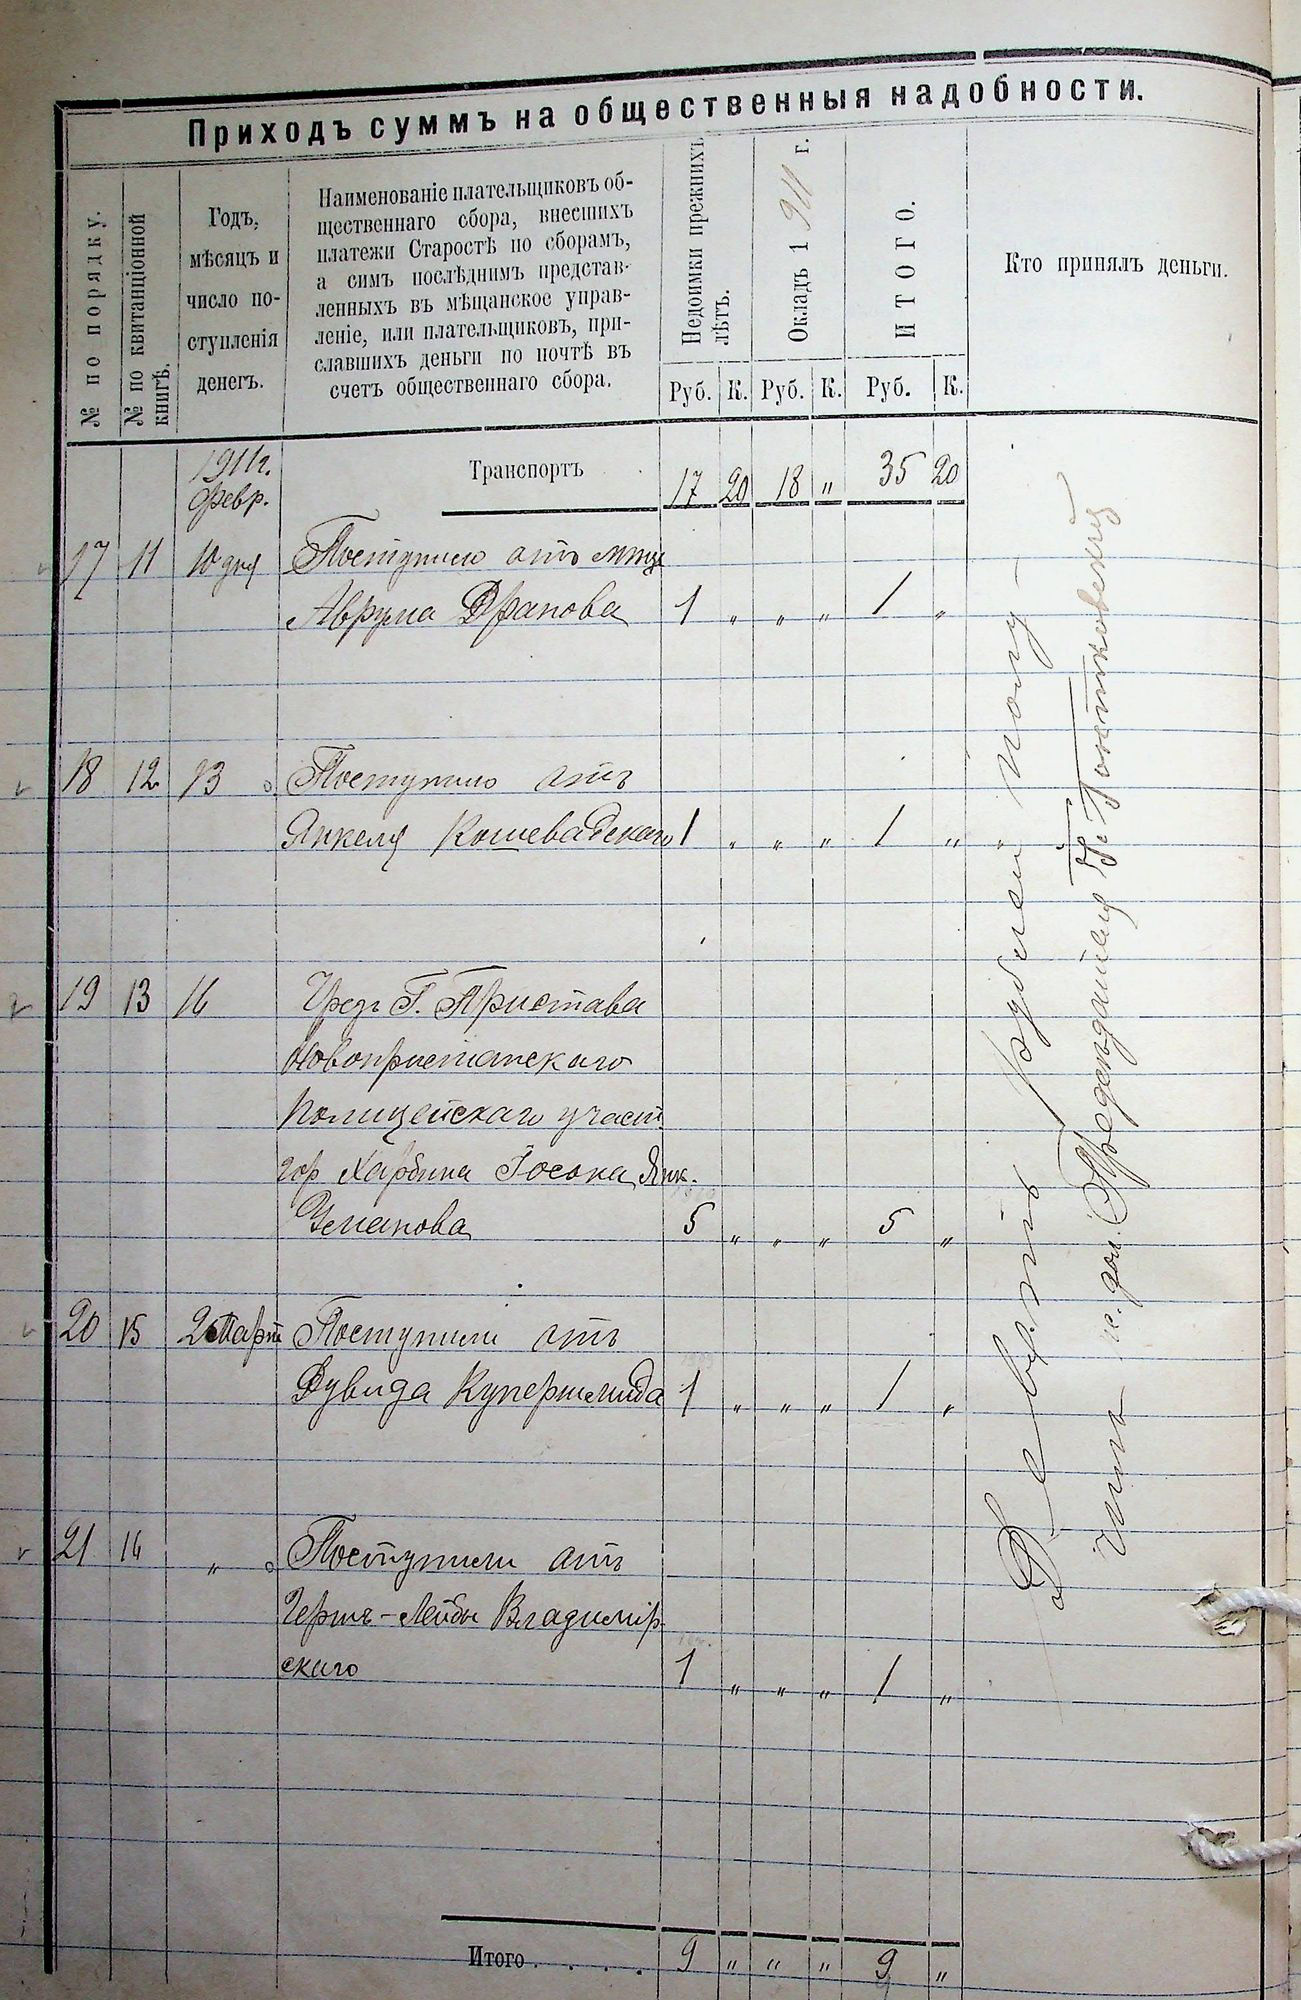 Приходъ суммъ на общественныя надобности.
№ по порядку.
№ по квитанціонной
книгѣ.
Годъ,
мѣсяцъ и
число по-
ступленія
денегъ.
Наименованіе плательщиковъ об-
щественнаго сбора, внесшихъ
платежи Старостѣ по сборамъ,
а симъ послѣднимъ представ-
ленныхъ въ мѣщанское управ-
леніе, или плательщиковъ, при-
славшихъ деньги по почтѣ въ
счетъ общественнаго сбора.
Недоимки прежнихъ
лѣтъ.
Окладъ 1911 г.
ИТОГО.
Кто принялъ деньги.
Руб. К. Руб. К. Руб. К.
1911г.
февр.
Транспортъ 17 20 18 „ 35 20
17 11 10 дня Поступило отъ мѣщ
Аврума Драпова 1 „ „ „ 1 „
18 12 13 Поступило отъ
Янкеля Кошевадскаго 1 „ „ „ 1 „
19 13 16 Чрезъ Г. Пристава
Новопристанскаго
Полицейскаго участ
гор Харбина Іоська Янк.
Уманова 5 „ „ „ 5 „
20 15 2 Март Поступили отъ
Дувида Купершмида 1 „ „ „ 1 „
21 16 „ Поступили отъ
Гершъ-Лейбы Владимір-
скаго 1 „ „ „ 1 „
Девять рублей полу-
чилъ и. дол. Предсѣдателя
Итого . . . . 9 „ „ „ 9 „